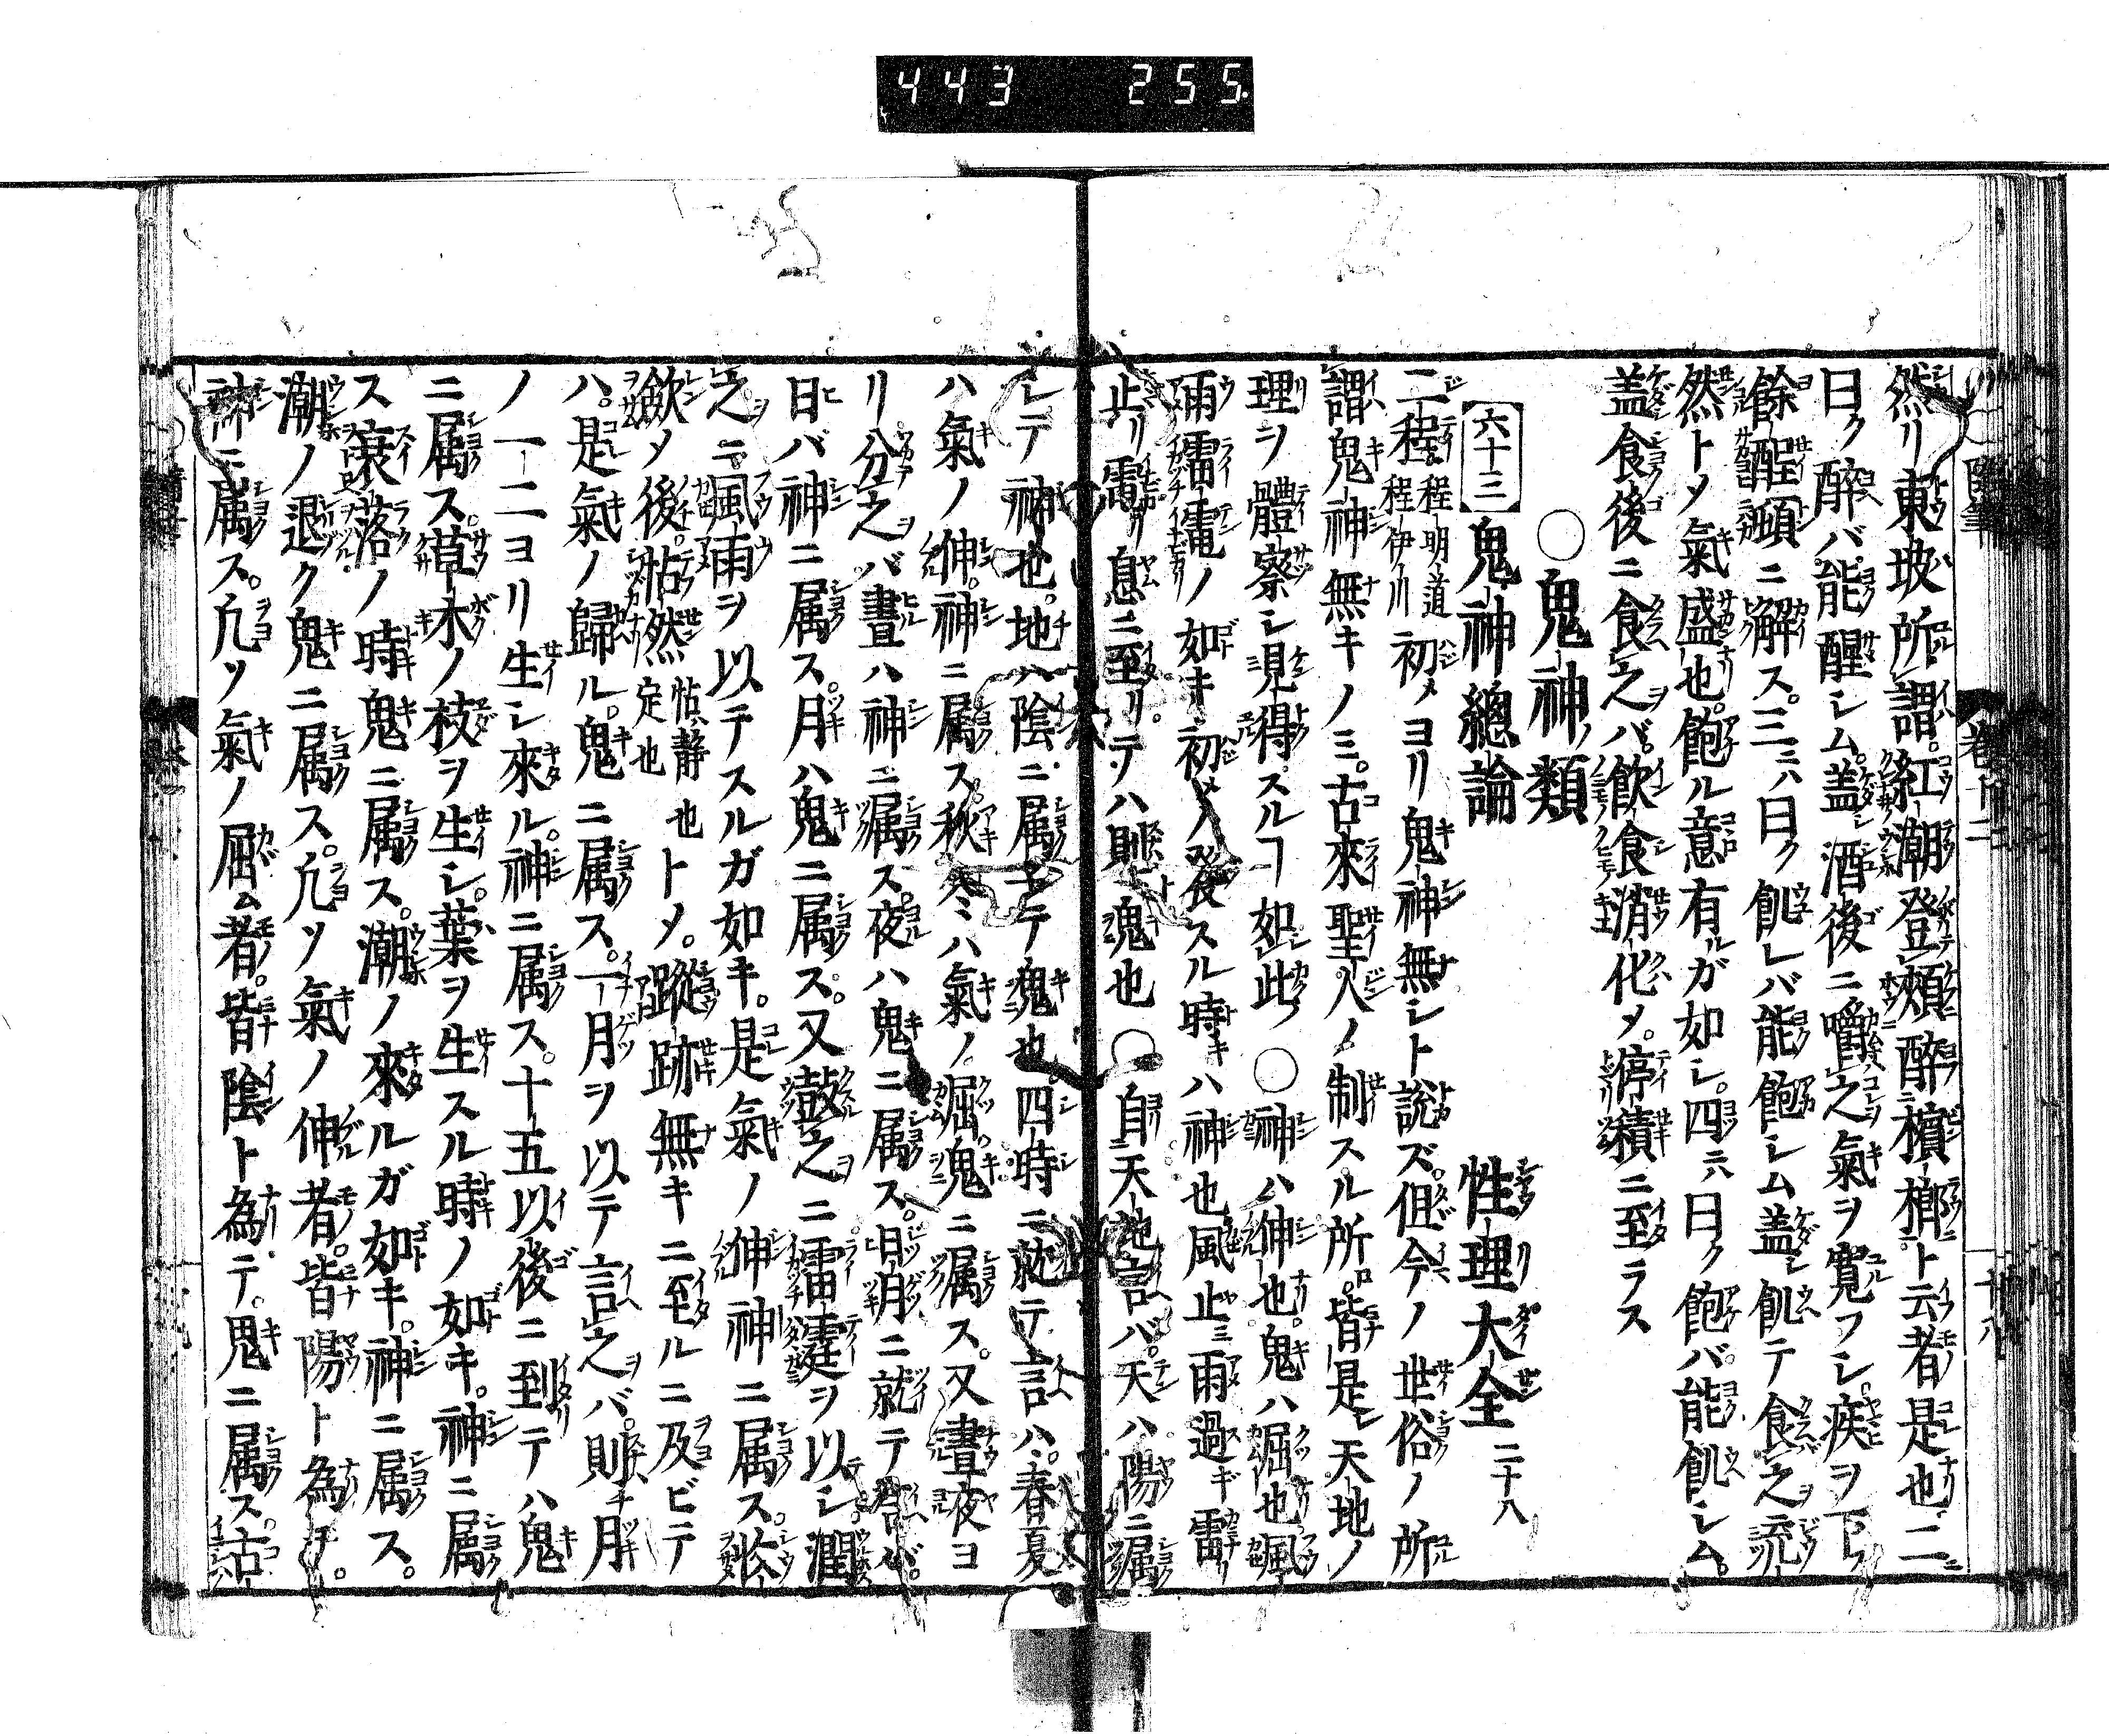 443 255
然リ東坡所謂。紅潮登頰醉檳榔ト云者是也二ニ
曰ク醉バ能醒シム。盖酒後ニ嚼之氣ヲ寬フシ。疾ヲ下シ
餘酲頓ニ解ス。三ニハ曰ク飢レバ能飽シム盖シ飢テ食之ヲ充
然トメ氣盛也。飽ル意有ルガ如シ。四ニハ曰ク飽バ能飢シム。
盖食後ニ食之バ。飲食消化メ。停積ニ至ラス
〇鬼神ノ類
六十三 鬼神總論 性理大全 二十八
二程 程明道 程伊川 初メヨリ鬼神無シト說ズ。但今ノ世俗ノ所
謂鬼神無キノミ。古來聖人ノ制スル所。皆是レ天地ノ
理ヲ體察シ見得スルヿ如此 〇神ハ伸也。鬼ハ屈也風
雨雷電ノ如キ初メ發スル時キハ神也風止ミ雨過ギ雷
止リ電リ息ニ至リテハ則鬼也〇自天地言バ。天ハ陽ニ屬
シテ神也。地ハ陰ニ屬シテ鬼也。四時ニ就テ言ハ。春夏
ハ氣ノ伸。神ニ属ス。秋冬ハ氣ノ屈。鬼ニ属ス。又晝夜ヨ
リ分之バ晝ハ神ニ属ス。夜ハ鬼ニ属ス。日月ニ就テ言バ。
日バ神ニ属ス。月ハ鬼ニ属ス。又鼓之ニ雷霆ヲ以シ。潤
之ニ風雨ヲ以テスルガ如キ。是氣ノ伸神ニ属ス。
歛メ後。帖然 帖静也 定也 トメ。蹤跡無キニ至ルニ及ビテ
ハ。是氣ノ歸ル。鬼ニ属ス。一月ヲ以テ言之バ。則チ月
ノ一二ヨリ生シ來ル。神ニ属ス。十五以後ニ到テハ鬼
ニ属ス。草木ノ枝ヲ生シ。葉ヲ生スル時ノ如キ。神ニ属
ス衰落ノ時鬼ニ属ス。潮ノ來ルガ如キ。神ニ属ス。
潮ノ退ク鬼ニ属ス。凢ソ氣ノ伸者。皆陽ト為テ。
神ニ属ス。凢ソ氣ノ屈ム者。皆陰ト為テ。鬼ニ属ス古